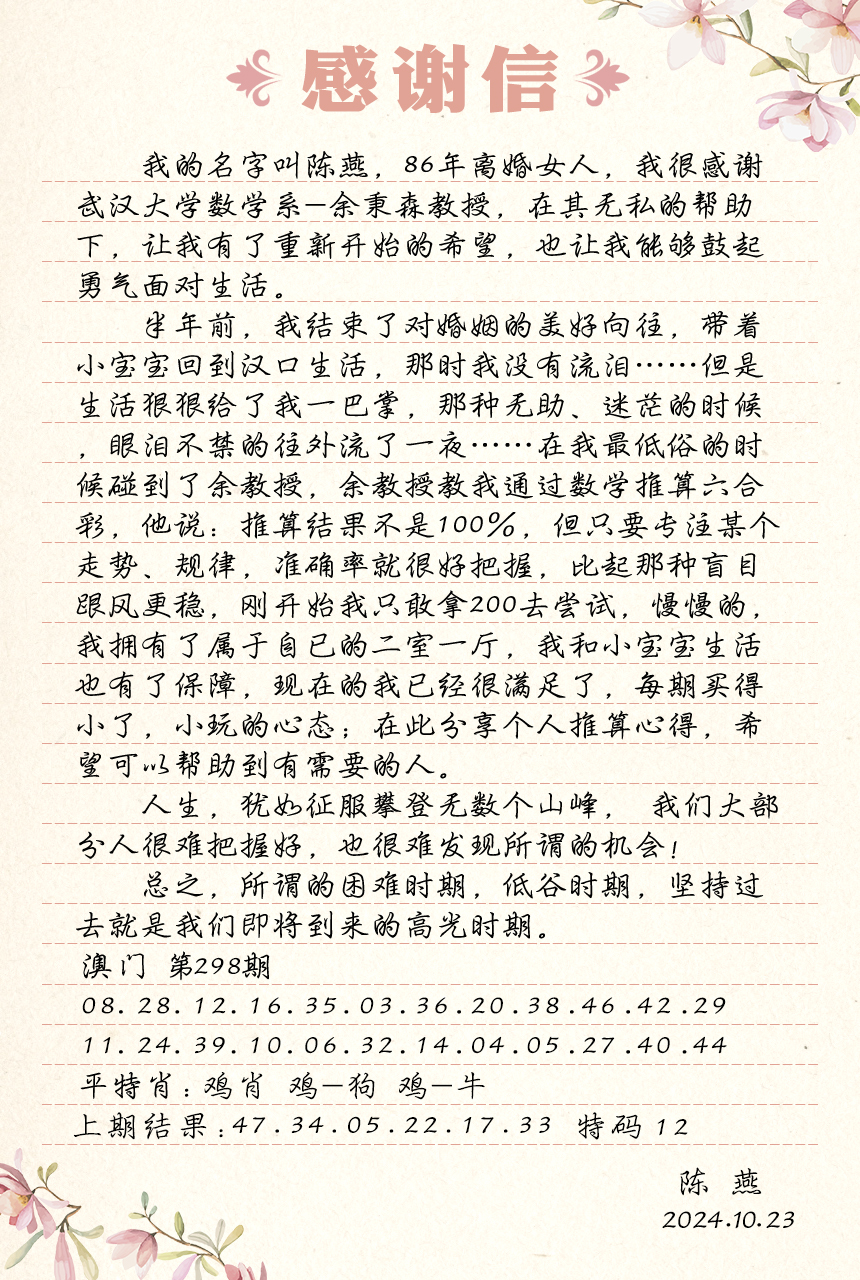 感谢信
我的名字叫陈燕，86年离婚女人，我很感谢
武汉大学数学系—余秉森教授，在其无私的帮助
下，让我有了重新开始的希望，也让我能够鼓起
勇气面对生活。
半年前，我结束了对婚姻的美好向往，带着
小宝宝回到汉口生活，那时我没有流泪……但是
生活狠狠给了我一巴掌，那种无助、迷茫的时候
，眼泪不禁的往外流了一夜……在我最低俗的时
候碰到了余教授，余教授教我通过数学推算六合
彩，他说：推算结果不是100%，但只要专注某个
走势、规律，准确率就很好把握，比起那种盲目
跟风更稳，刚开始我只敢拿200去尝试，慢慢的，
我拥有了属于自已的二室一厅，我和小宝宝生活
也有了保障，现在的我已经很满足了，每期买得
小了，小玩的心态；在此分享个人推算心得，希
望可以帮助到有需要的人。
人生，犹如征服攀登无数个山峰， 我们大部
分人很难把握好，也很难发现所谓的机会！
总之，所谓的困难时期，低谷时期，坚持过
去就是我们即将到来的高光时期。
澳门 第298期
08.28.12.16.35.03.36.20.38.46.42.29
11.24.39.10.06.32.14.04.05.27.40.44
平特肖：鸡肖 鸡—狗 鸡—牛
上期结果：47.34.05.22.17.33 特码 12
陈 燕
2024.10.23